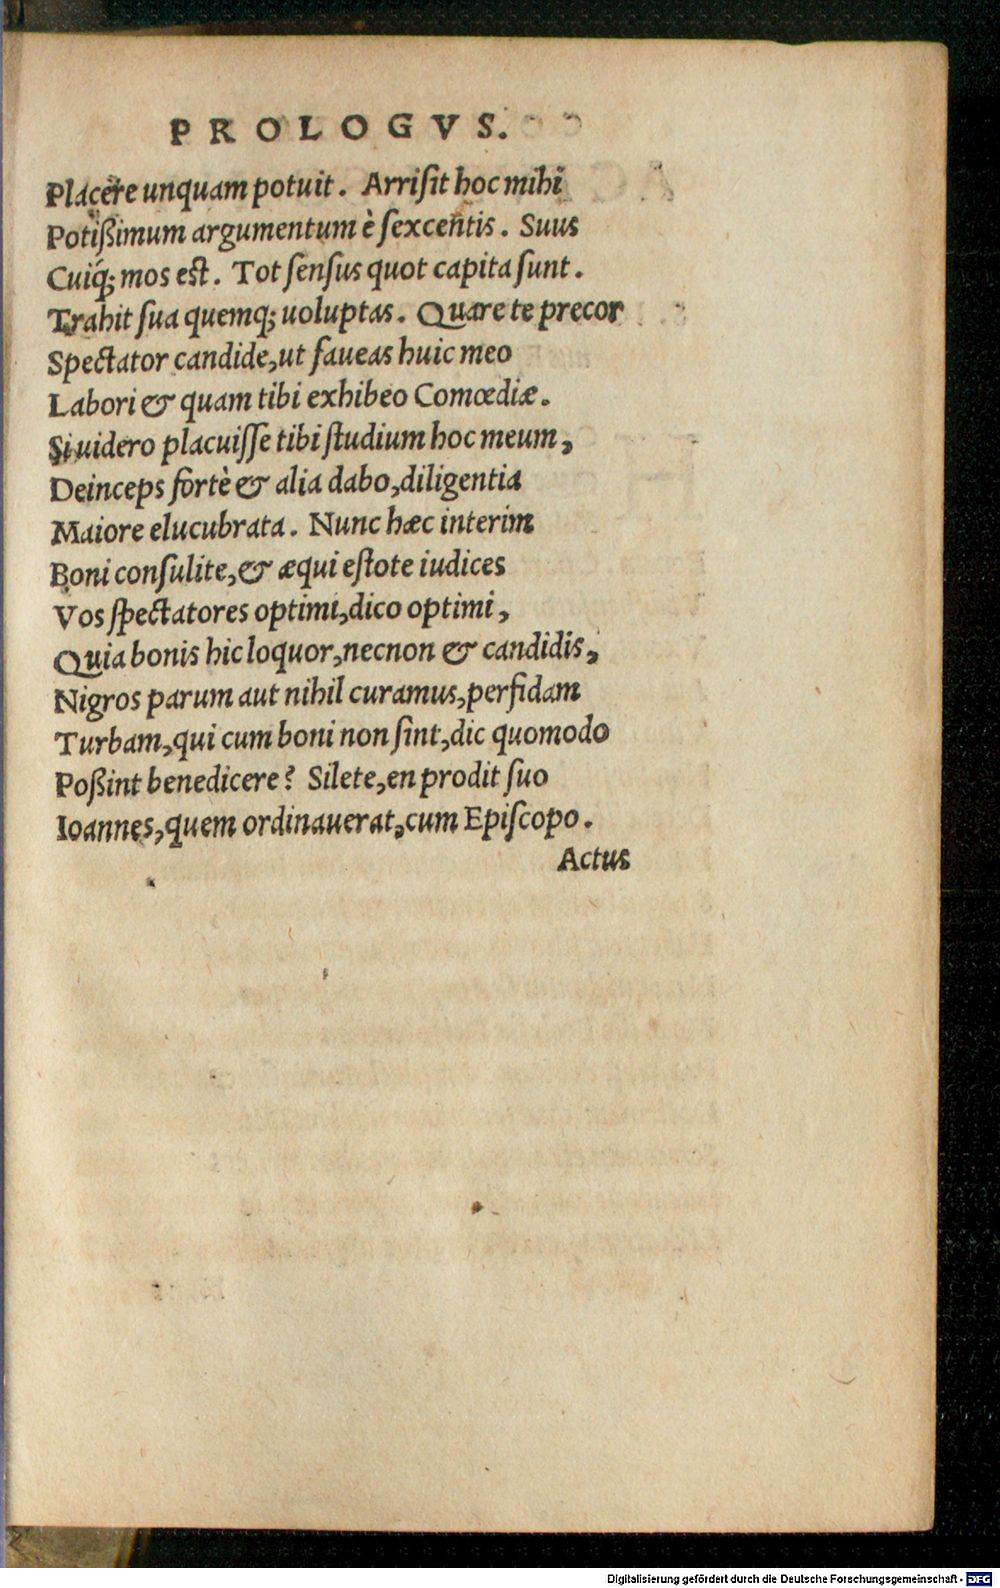 PROLOGVS.
Placere unquam potuit. Arrisit hoc mihi
Potißimum argumentum è sexcentis. Suus
Cuiq́; mos est. Tot sensus quot capita sunt.
Trahit sua quemq; uoluptas. Quare te precor
Spectator candide, ut faueas huic meo
Labori & quam tibi exhibeo Comœdiæ.
Si uidero placuisse tibi studium hoc meum,
Deinceps fortè & alia dabo, diligentia
Maiore elucubrata. Nunc hæc interim
Boni consulite, & æqui estote iudices
Vos spectatores optimi, dico optimi,
Quia bonis hic loquor, necnon & candidis,
Nigros parum aut nihil curamus, perfidam
Turbam, qui cum boni non sint, dic quomodo
Poßint benedicere? Silete, en prodit suo
Ioannes, quem ordinauerat, cum Episcopo.
Actus
Digitalisierung gefördert durch die Deutsche Forschungsgemeinschaft - DFG